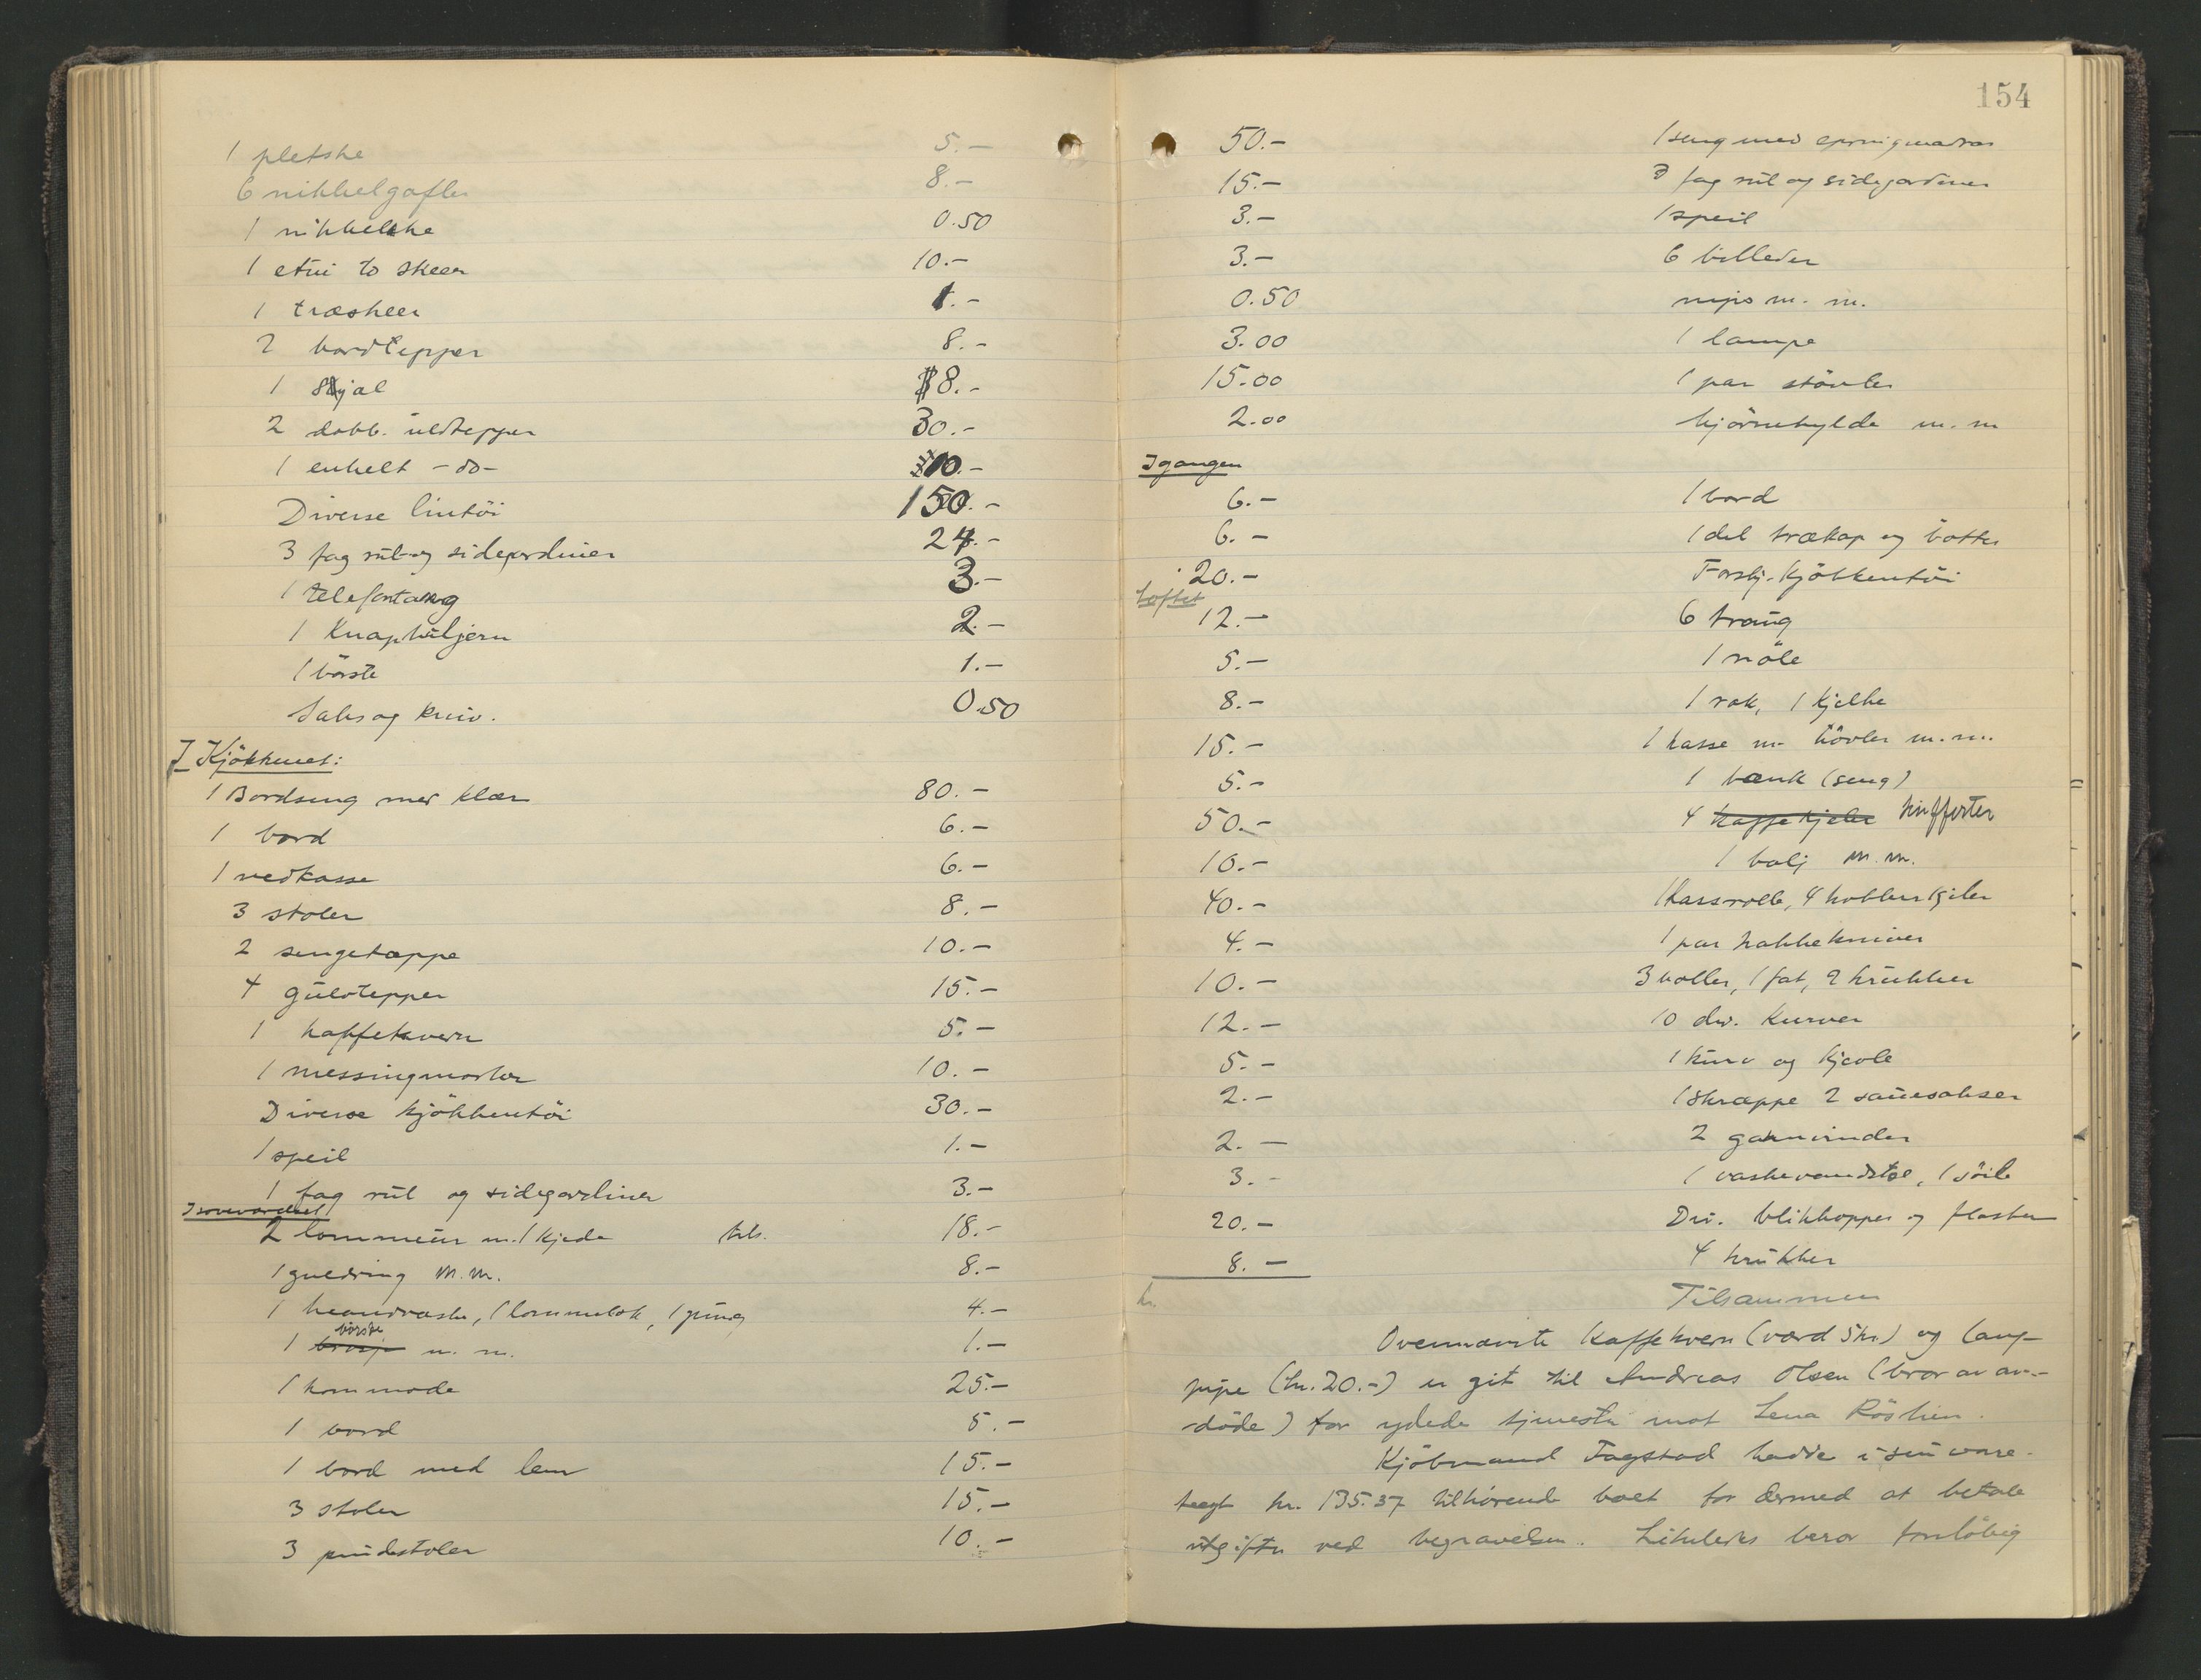 1 pletske 5.-
6 nikkelgafler 8.-
1 nikkelske 0.50
1 etui to skeer 10.-
1 træskeer 1.-
2 bordtepper 8.-
1 Sjal 8.-
2 dobb. uldtepper 30.-
1 enkelt -do- 10.-
Diverse lintöi 150.-
3 fag rul- og sidegardiner 24.-
1 3.-
1 Knaphuljern 2.-
1 börste 1.-
Saks og kniv. 0.50
I Kjökkenet:
1 Bordseng med klær 80.-
1 bord 6.-
1 vedkasse 6.-
3 stoler 8.-
2 sengetæppe 10.-
4 gulvtepper 15.-
1 kaffekvern 5.-
1 messingmorter 10.-
Diverse kjökkentöi 30.-
1 speil 1.-
1 fag rul og sidegardiner 3.-
I soveværelset
2 lommeur m. 1 kjede tils. 18.-
1 guldring m.m. 8.-
1 haandvaske, 1 lommebok, 1 pung 4.-
1 börste m. m. 1.-
1 kommode 25.-
1 bord 5.-
1 bord med lem 15.-
3 stoler 15.-
3 pindestoler 10.-
154
50.- 1 seng med springmadras
15.- 3 fag rul og sidegardiner
3.- 1 speil
3.- 6 billeder
0.50 nips m. m.
3.00 1 lampe
15.00 1 par stövler
2.00 hjörnehylde m. m
I gangen
6.- 1 bord
6.- 1 del trækop og bötter
20.- Forskj. kjökkentöi
Loftet
12.- 6 traug
5.- 1 nöle
8.- 1 rok, 1 kjelke
15.- 1 kasse m. hövler m.m.
5.- 1 bænk (seng)
50.- 4 kaffekjeler kufferter
10.- 1 balj m.m.
40.- 1 kasserolle, 4 kobberkjeler
4.- 1 par hakkekniver
10.- 3 boller, 1 fat, 2 krukker
12.- 10 div. kurver
5.- 1 kurv og kjole
2.- 1 skræppe 2 sauesakser
2.- 2 garnvinder
3.- 1 vaskevandstol, 1 söile
20.- Div. blikkopper og flasker
8.- 4 krukker
kr. Tilsammen
Ovennævnte kaffekvern (værd 5 kr.) og lang-
pipe (kr. 20.-) er git til Andreas Olsen (bror av av-
döde) for ydede tjenester mot Lena Röslien.
Kjöbmand Fagstad hadde i sin vare-
tægt kr. 135.37 tilhörende boet for dermed at betale
utgifter ved begravelsen. Likeledes beror forelöbig